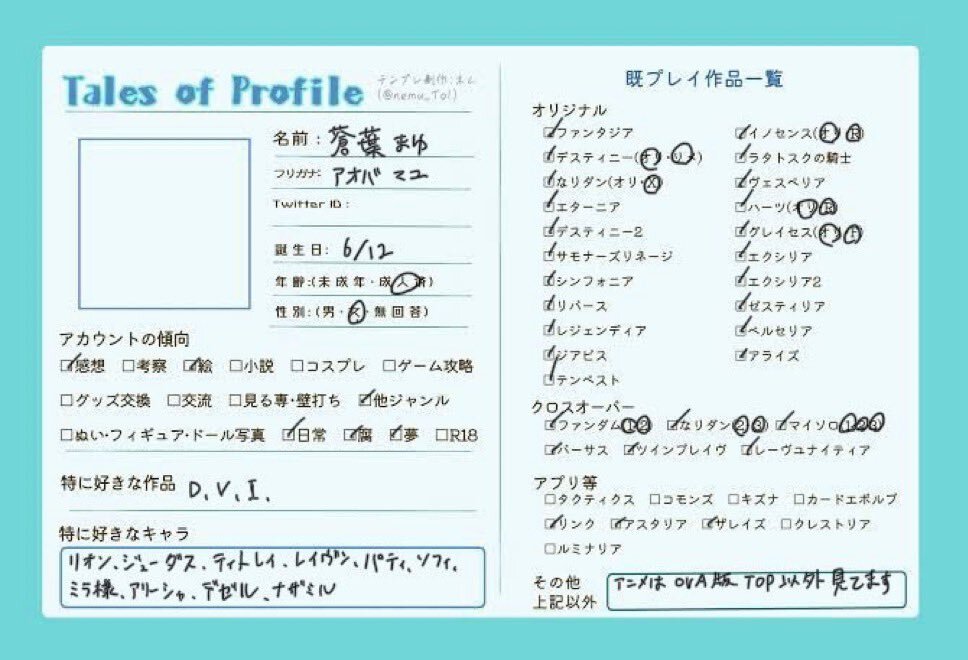 Tales of Profile
テンプレ制作:ねむ
(@nemu_Tol)
名前:蒼葉まゆ
フリガナ:アオバマユ
Twitter ID:
誕生日:6/12
年齢:(未成年・成人済)
性別:(男・女・無回答)
アカウントの傾向
☑感想 □考察 ☑絵 □小説 □コスプレ □ゲーム攻略
□グッズ交換 □交流 □見る専・壁打ち ☑他ジャンル
□ぬい・フィギュア・ドール写真 ☑日常 ☑腐 ☑夢 □R18
特に好きな作品 D.V.I.
特に好きなキャラ
リオン、ジューダス、ティトレイ、レイヴン、パティ、ソフィ、
ミラ様、アリーシャ、デゼル、ナザミル
既プレイ作品一覧
オリジナル
☑ファンタジア
☑デスティニー(オリ・リメ)
☑なりダン(オリ・X)
☑エターニア
☑デスティニー2
☑サモナーズリネージ
☑シンフォニア
☑リバース
☑レジェンディア
☑ジアビス
☑テンペスト
☑イノセンス(オリ・R)
☑ラタトスクの騎士
☑ヴェスペリア
☑ハーツ(オリ・R)
☑グレイセス(オリ・f)
☑エクシリア
☑エクシリア2
☑ゼスティリア
☑ベルセリア
☑アライズ
クロスオーバー
☑ファンダム(1・2) ☑なりダン(2・3) ☑マイソロ(1・2・3)
☑バーサス ☑ツインブレイヴ ☑レーヴユナイティア
アプリ等
□タクティクス □コモンズ □キズナ □カードエボルブ
☑リンク ☑アスタリア ☑ザレイズ □クレストリア
□ルミナリア
その他
上記以外
アニメは OVA版 TOP以外 見てます